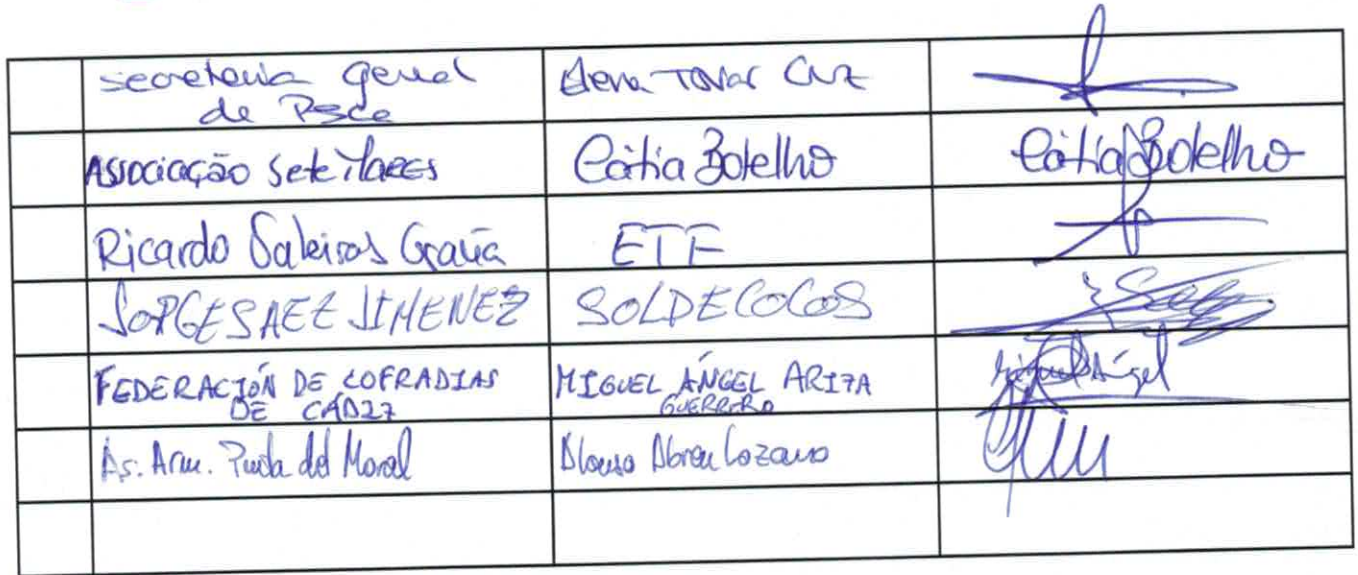 Secretaria General Elena Tovar Cruz
de Pesca
Associação Sete Mares Cátia Botelho Cátia Botelho
Ricardo Saleiros Gravia ETF
JORGE SAEZ JIMENEZ SOLDECOCOS
FEDERACIÓN DE COFRADIAS MIGUEL ÁNGEL ARIZA Miguel Ángel
DE CADIZ GUERRERO
As. Arm. Punta del Moral Alonso Abreu Lozano